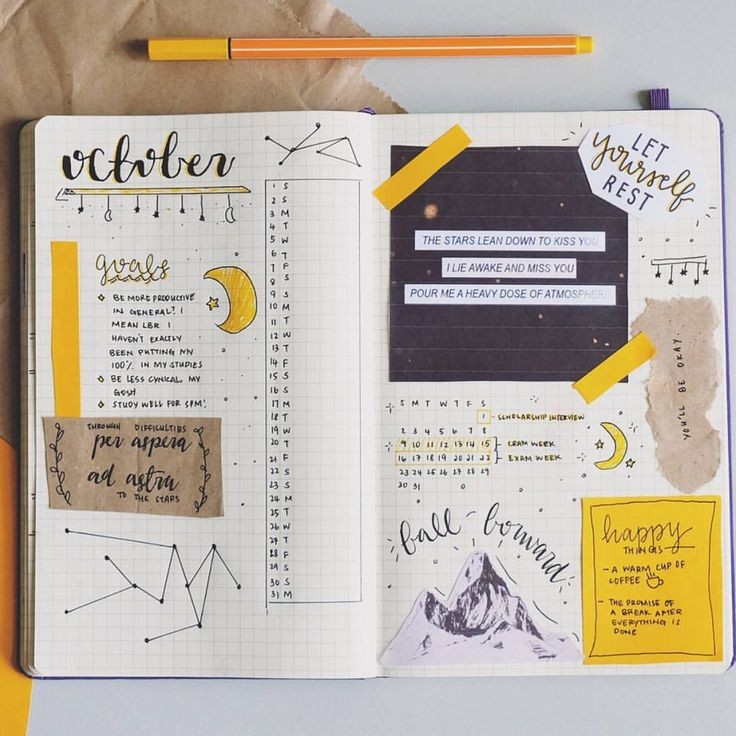 october
goals
BE MORE PRODUCTIVE
IN GENERAL! I
MEAN LBR I
HAVEN'T EXACTLY
BEEN PUTTING MY
100% IN MY STUDIES
BE LESS CYNICAL MY
GOSH
STUDY WELL FOR SPM!
THROUGH DIFFICULTIES
per aspera
ad astra
TO THE STARS
1 S
2 S
3 M
4 T
5 W
6 T
7 F
8 S
9 S
10 M
11 T
12 W
13 T
14 F
15 S
16 S
17 M
18 T
19 W
20 T
21 F
22 S
23 S
24 M
25 T
26 W
27 T
28 F
29 S
30 S
31 M
THE STARS LEAN DOWN TO KISS YOU
I LIE AWAKE AND MISS YOU
POUR ME A HEAVY DOSE OF ATMOSPHERE
LET
yourself
REST
YOU'LL BE OKAY.
S M T W T F S
1 SCHOLARSHIP INTERVIEW
2 3 4 5 6 7 8
9 10 11 12 13 14 15 CRAM WEEK
16 17 18 19 20 21 22 EXAM WEEK
23 24 25 26 27 28 29
30 31
fall-forward
happy
THINGS
- A WARM CUP OF
COFFEE
- THE PROMISE OF
A BREAK AFTER
EVERYTHING IS
DONE